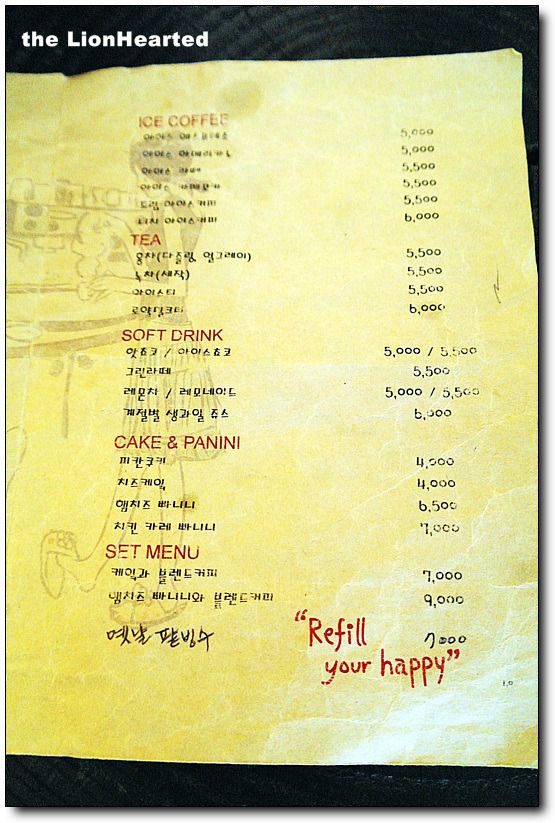 the LionHearted
ICE COFFEE
아이스 에스프레소 5,000
아이스 아메리카노 5,000
아이스 라떼 5,500
아이스 카페모카 5,500
드립 아이스커피 5,500
더치 아이스커피 6,000
TEA
홍차(다즐링, 얼그레이) 5,500
녹차(세작) 5,500
아이스티 5,500
로얄밀크티 6,000
SOFT DRINK
핫쵸코 / 아이스쵸코 5,000 / 5,500
그린라떼 5,500
레몬차 / 레모네이드 5,000 / 5,500
계절별 생과일 쥬스 6,000
CAKE & PANINI
피칸쿠키 4,000
치즈케익 4,000
햄치즈 빠니니 6,500
치킨 카레 빠니니 7,000
SET MENU
케익과 블렌드커피 7,000
햄치즈 빠니니와 블렌드커피 9,000
옛날 팥빙수 7000
"Refill
your happy"